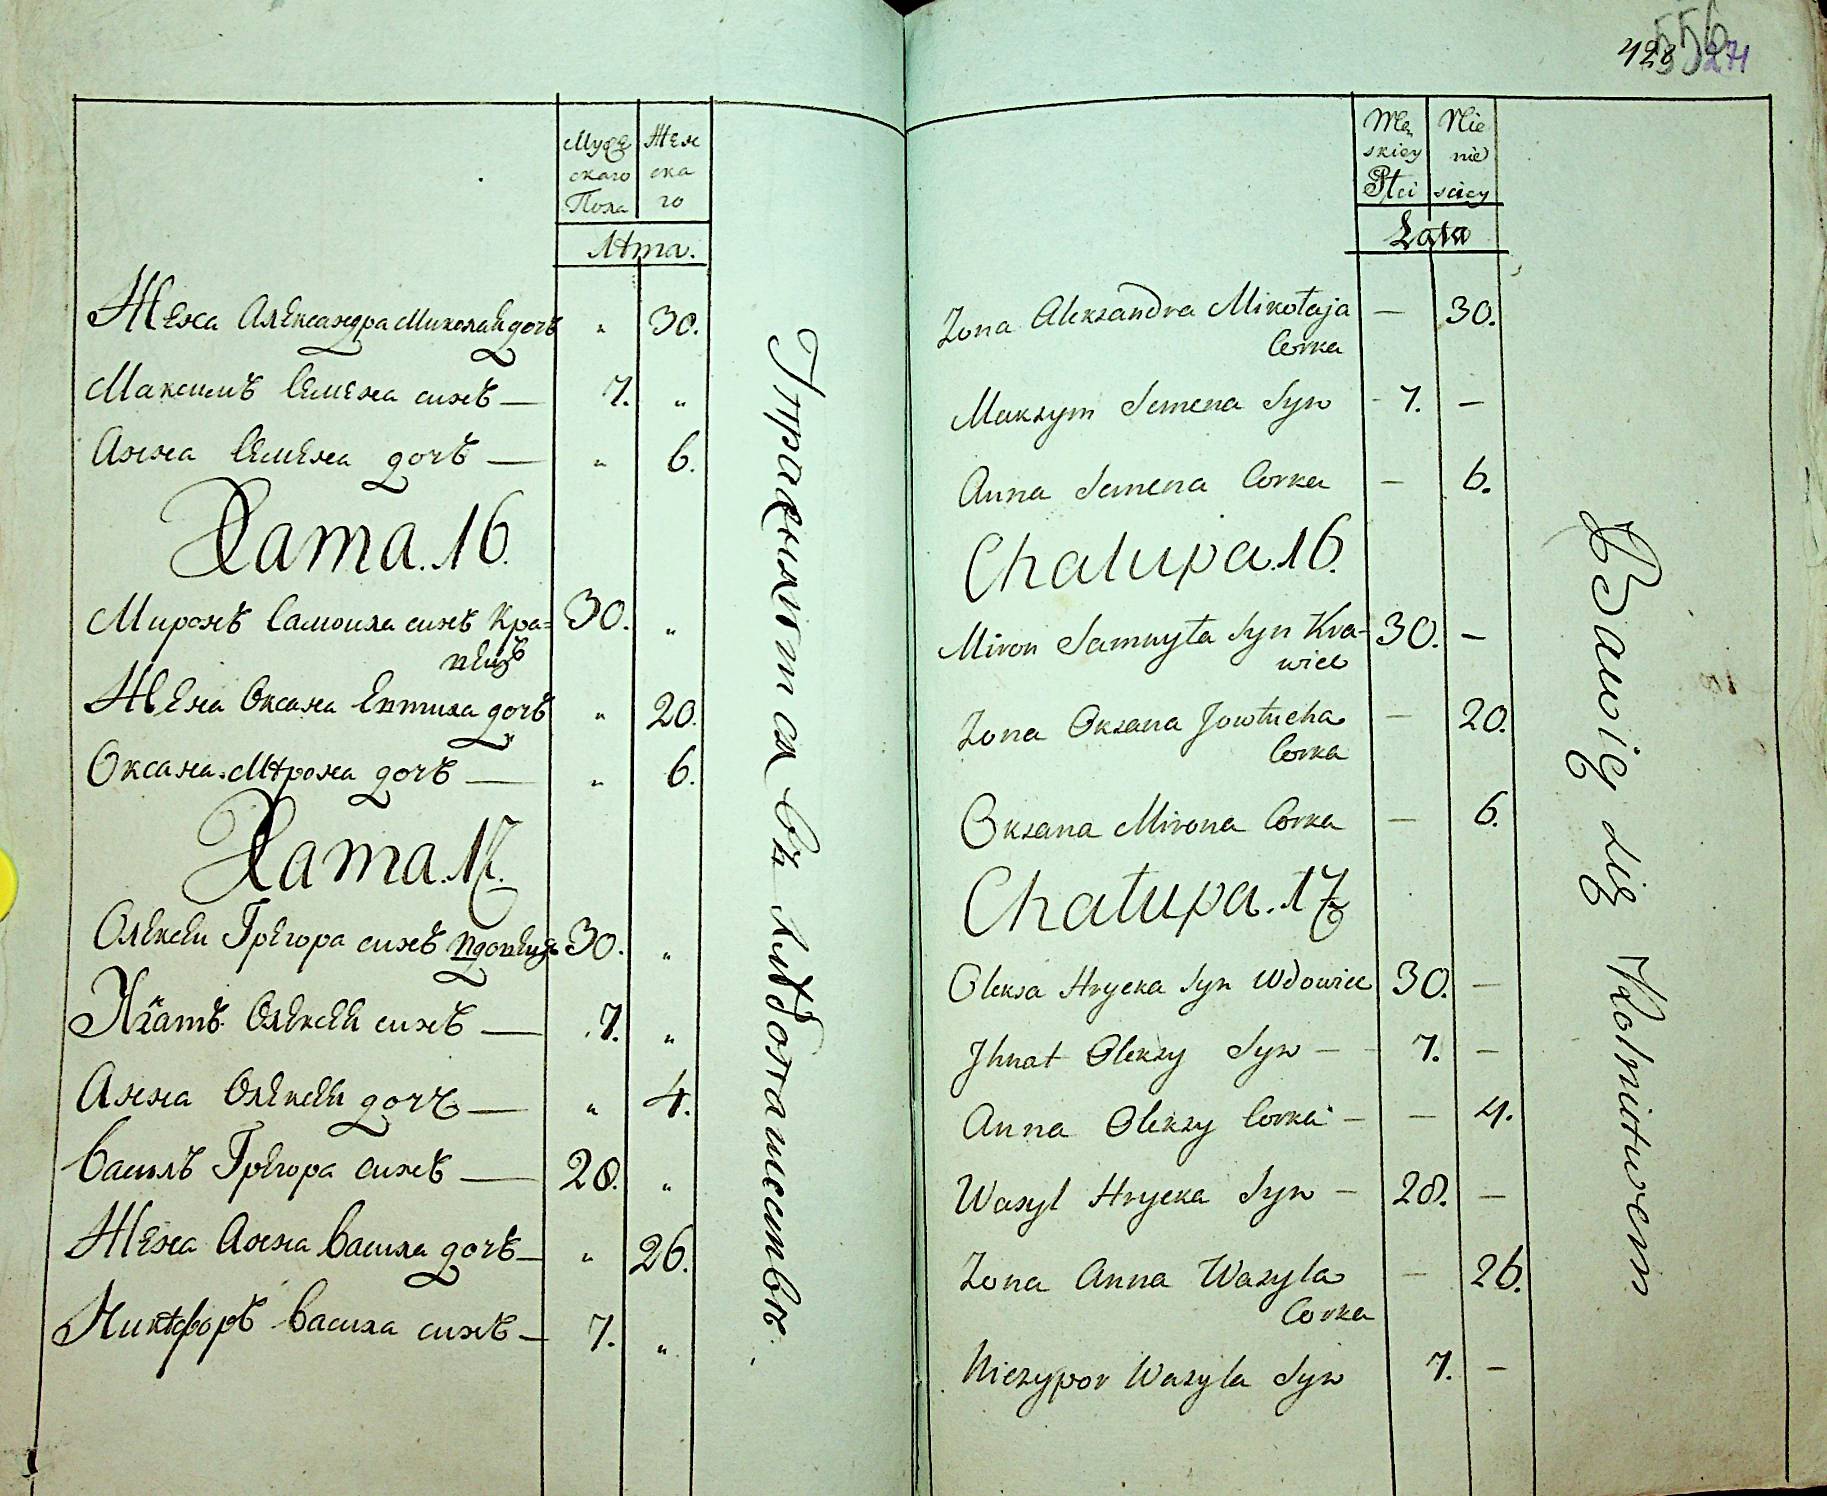 Мужe
скаго
Пола
Жен
ска
го
Лѣта.
Жена Александра Миколаи дочъ „ 30.
Максимъ Семена синъ — 7. „
Анна Семена дочъ — „ 6.
Хата. 16.
Миронъ Самоила синъ Кра= 30. „
вецъ
Жена Оксана Евтиха дочъ „ 20.
Оксана Мѣрона дочъ — „ 6.
Хата. 17.
Олексеи Грегора синъ вдовецъ 30. „
Игнатъ Олексеи синъ — 7. „
Анна Олексеи дочъ — „ 4.
Василъ Грегора синъ — 28. „
Жена Анна Васила дочъ — „ 26.
Никѣфоръ Васила синъ — 7. „
Упражняются въ хлебопашествы.
428 556 271
Mę
skiey
Płci
Nie
wie
sciey
Lata
Zona Alexandra Mikołaja — 30.
Corka
Maksym Semena Syn - 7. —
Anna Semena Corka — 6.
Chałupa. 16.
Miron Samuyła Syn Kra- 30. —
wiec
Zona Oksana Jowtucha — 20.
Corka
Oksana Mirona Corka — 6.
Chałupa. 17.
Olexa Hrycka Syn Wdowiec 30. —
Jhnat Olexy Syn — 7. —
Anna Olexy Corka — — 4.
Wasyl Hrycka Syn — 28. —
Zona Anna Wasyla — 26.
Corka
Niczypor Wasyla Syn 7. —
Bawią się Rolnictwem